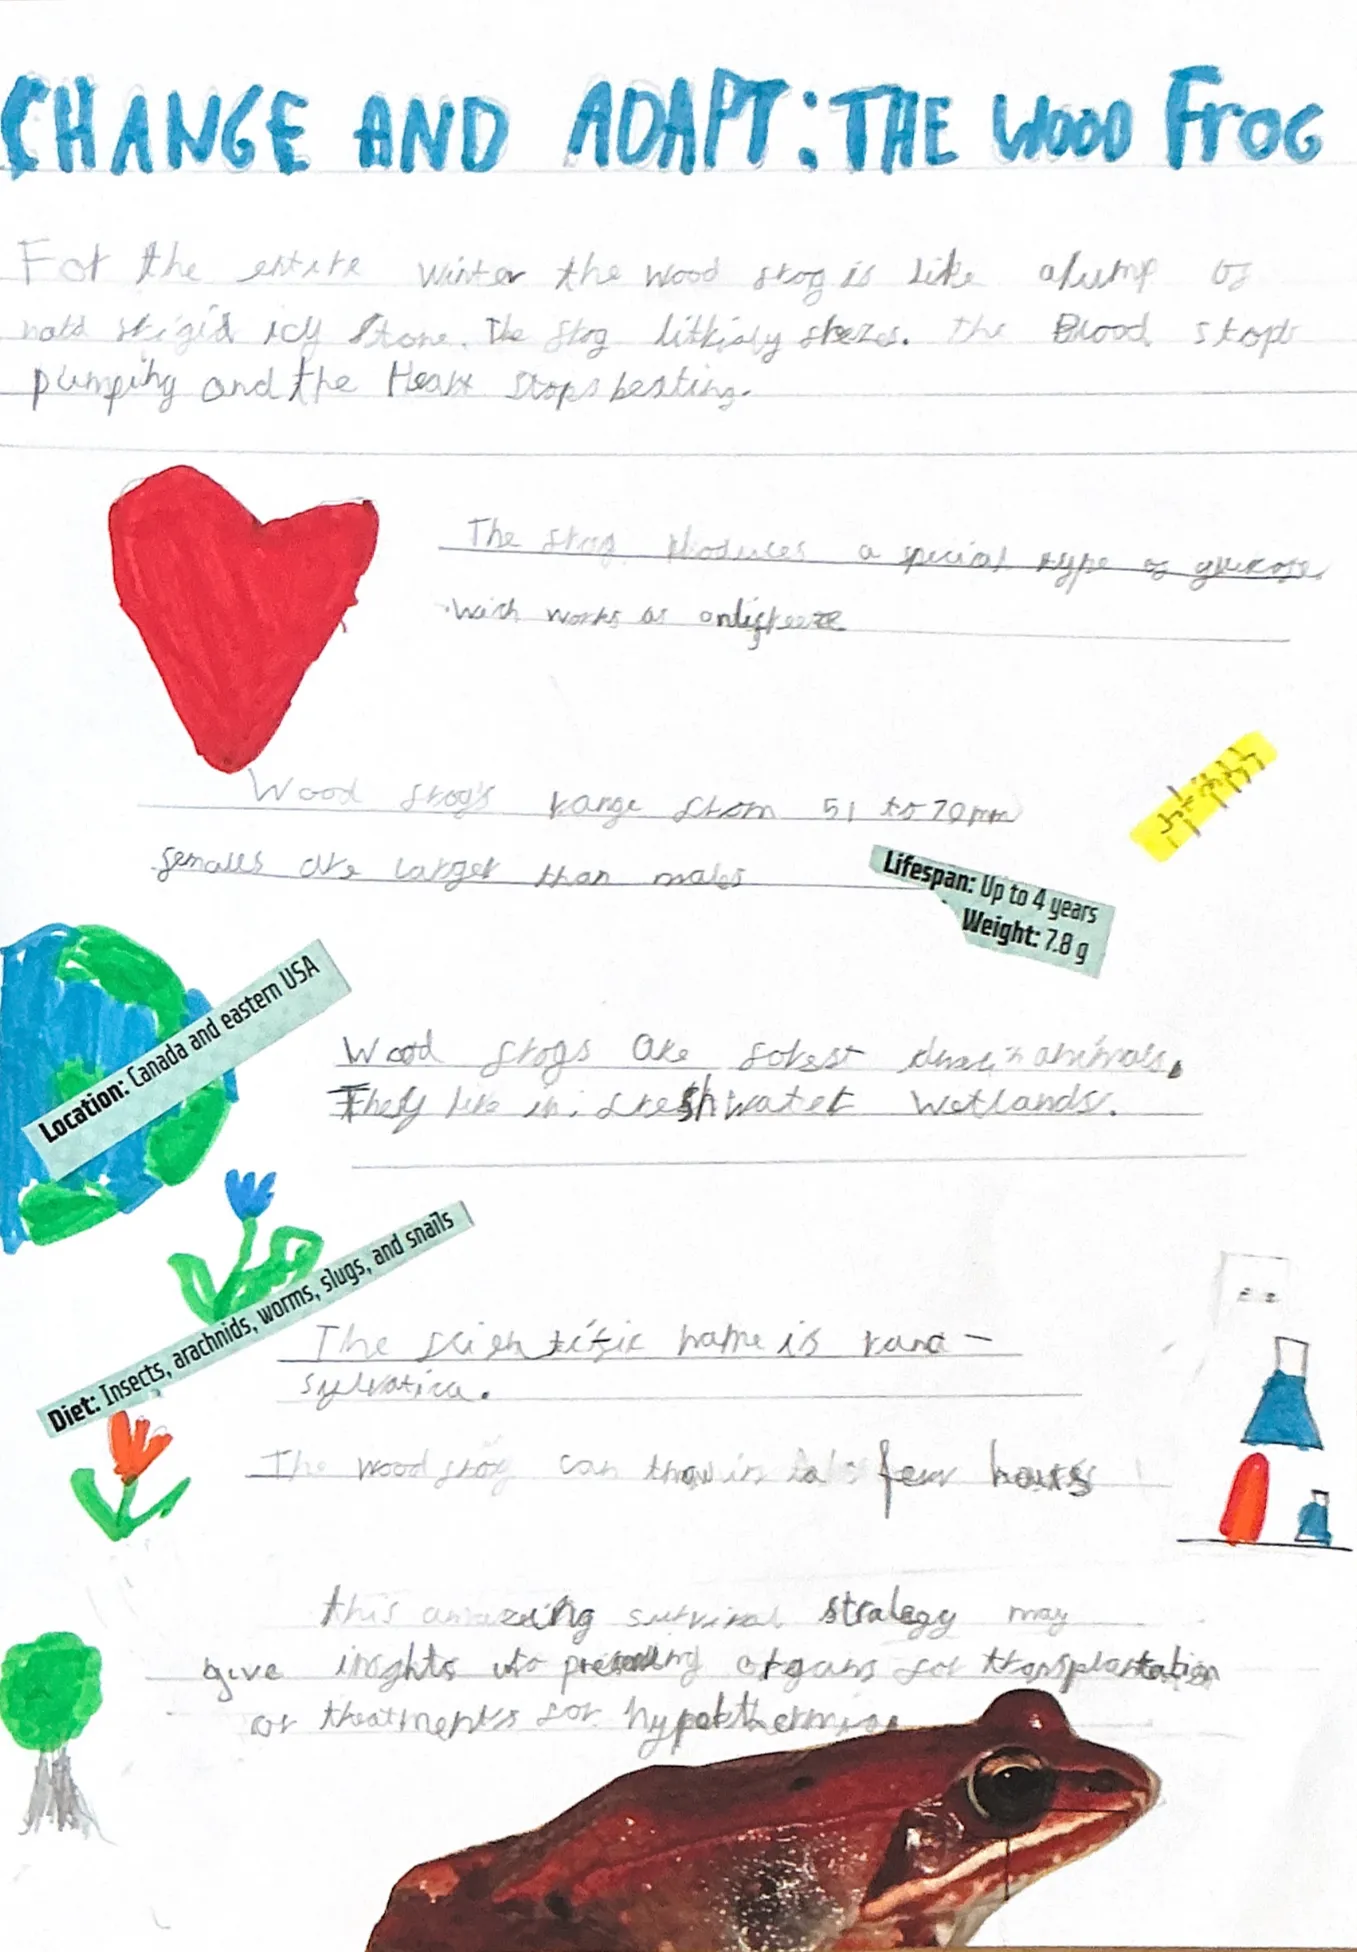 CHANGE AND ADAPT: THE WOOD FROG
For the entire winter the wood frog is like a lump of
hard frigid icy stone. The frog litrialy frezes. The Blood stops
pumping and the Heart stops beating.
The frog produces a special type of glucose
wich works as antifreeze
Wood frogs range from 51 to 70mm
females are larger than males
Lifespan: Up to 4 years
Weight: 7.8 g
Location: Canada and eastern USA
Wood frogs are forest animals.
They live in freshwater wetlands.
Diet: Insects, arachnids, worms, slugs, and snails
The scientific name is rana -
sylvatica.
The wood frog can thaw in few hours
this amazing survival strategy may
give insights into organs for transplantation
or treatments for hypothermia